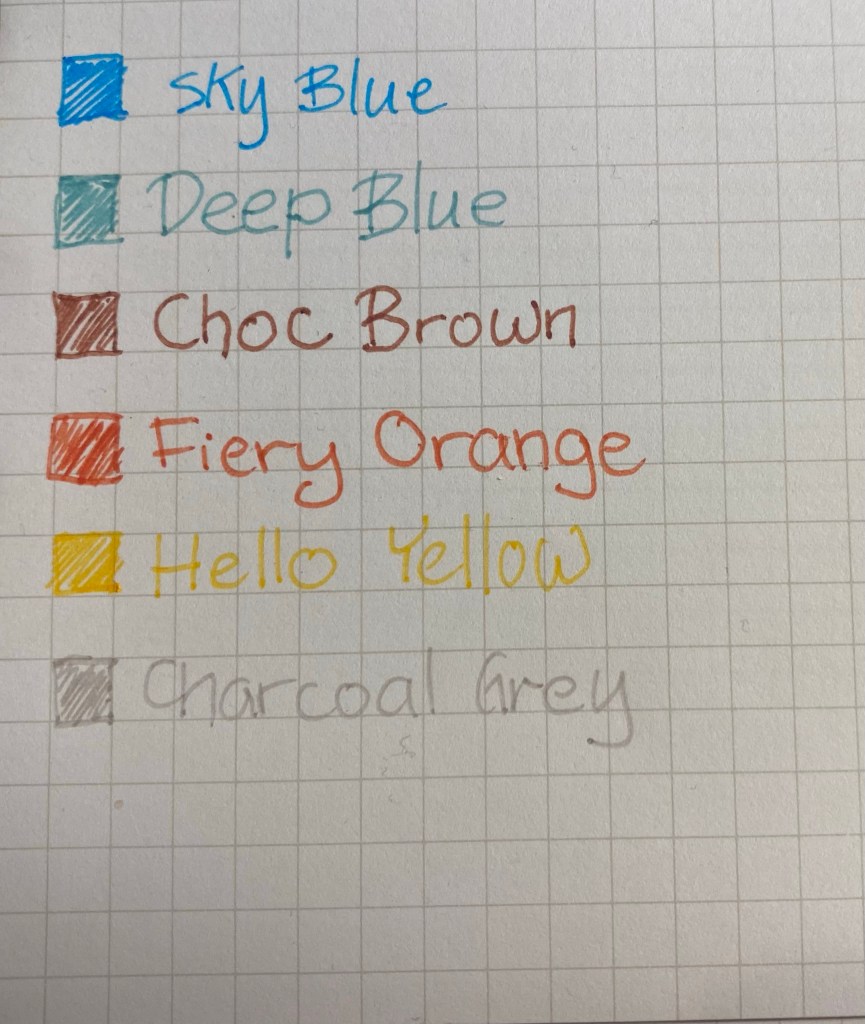 Sky Blue
Deep Blue
Choc Brown
Fiery Orange
Hello Yellow
Charcoal Grey